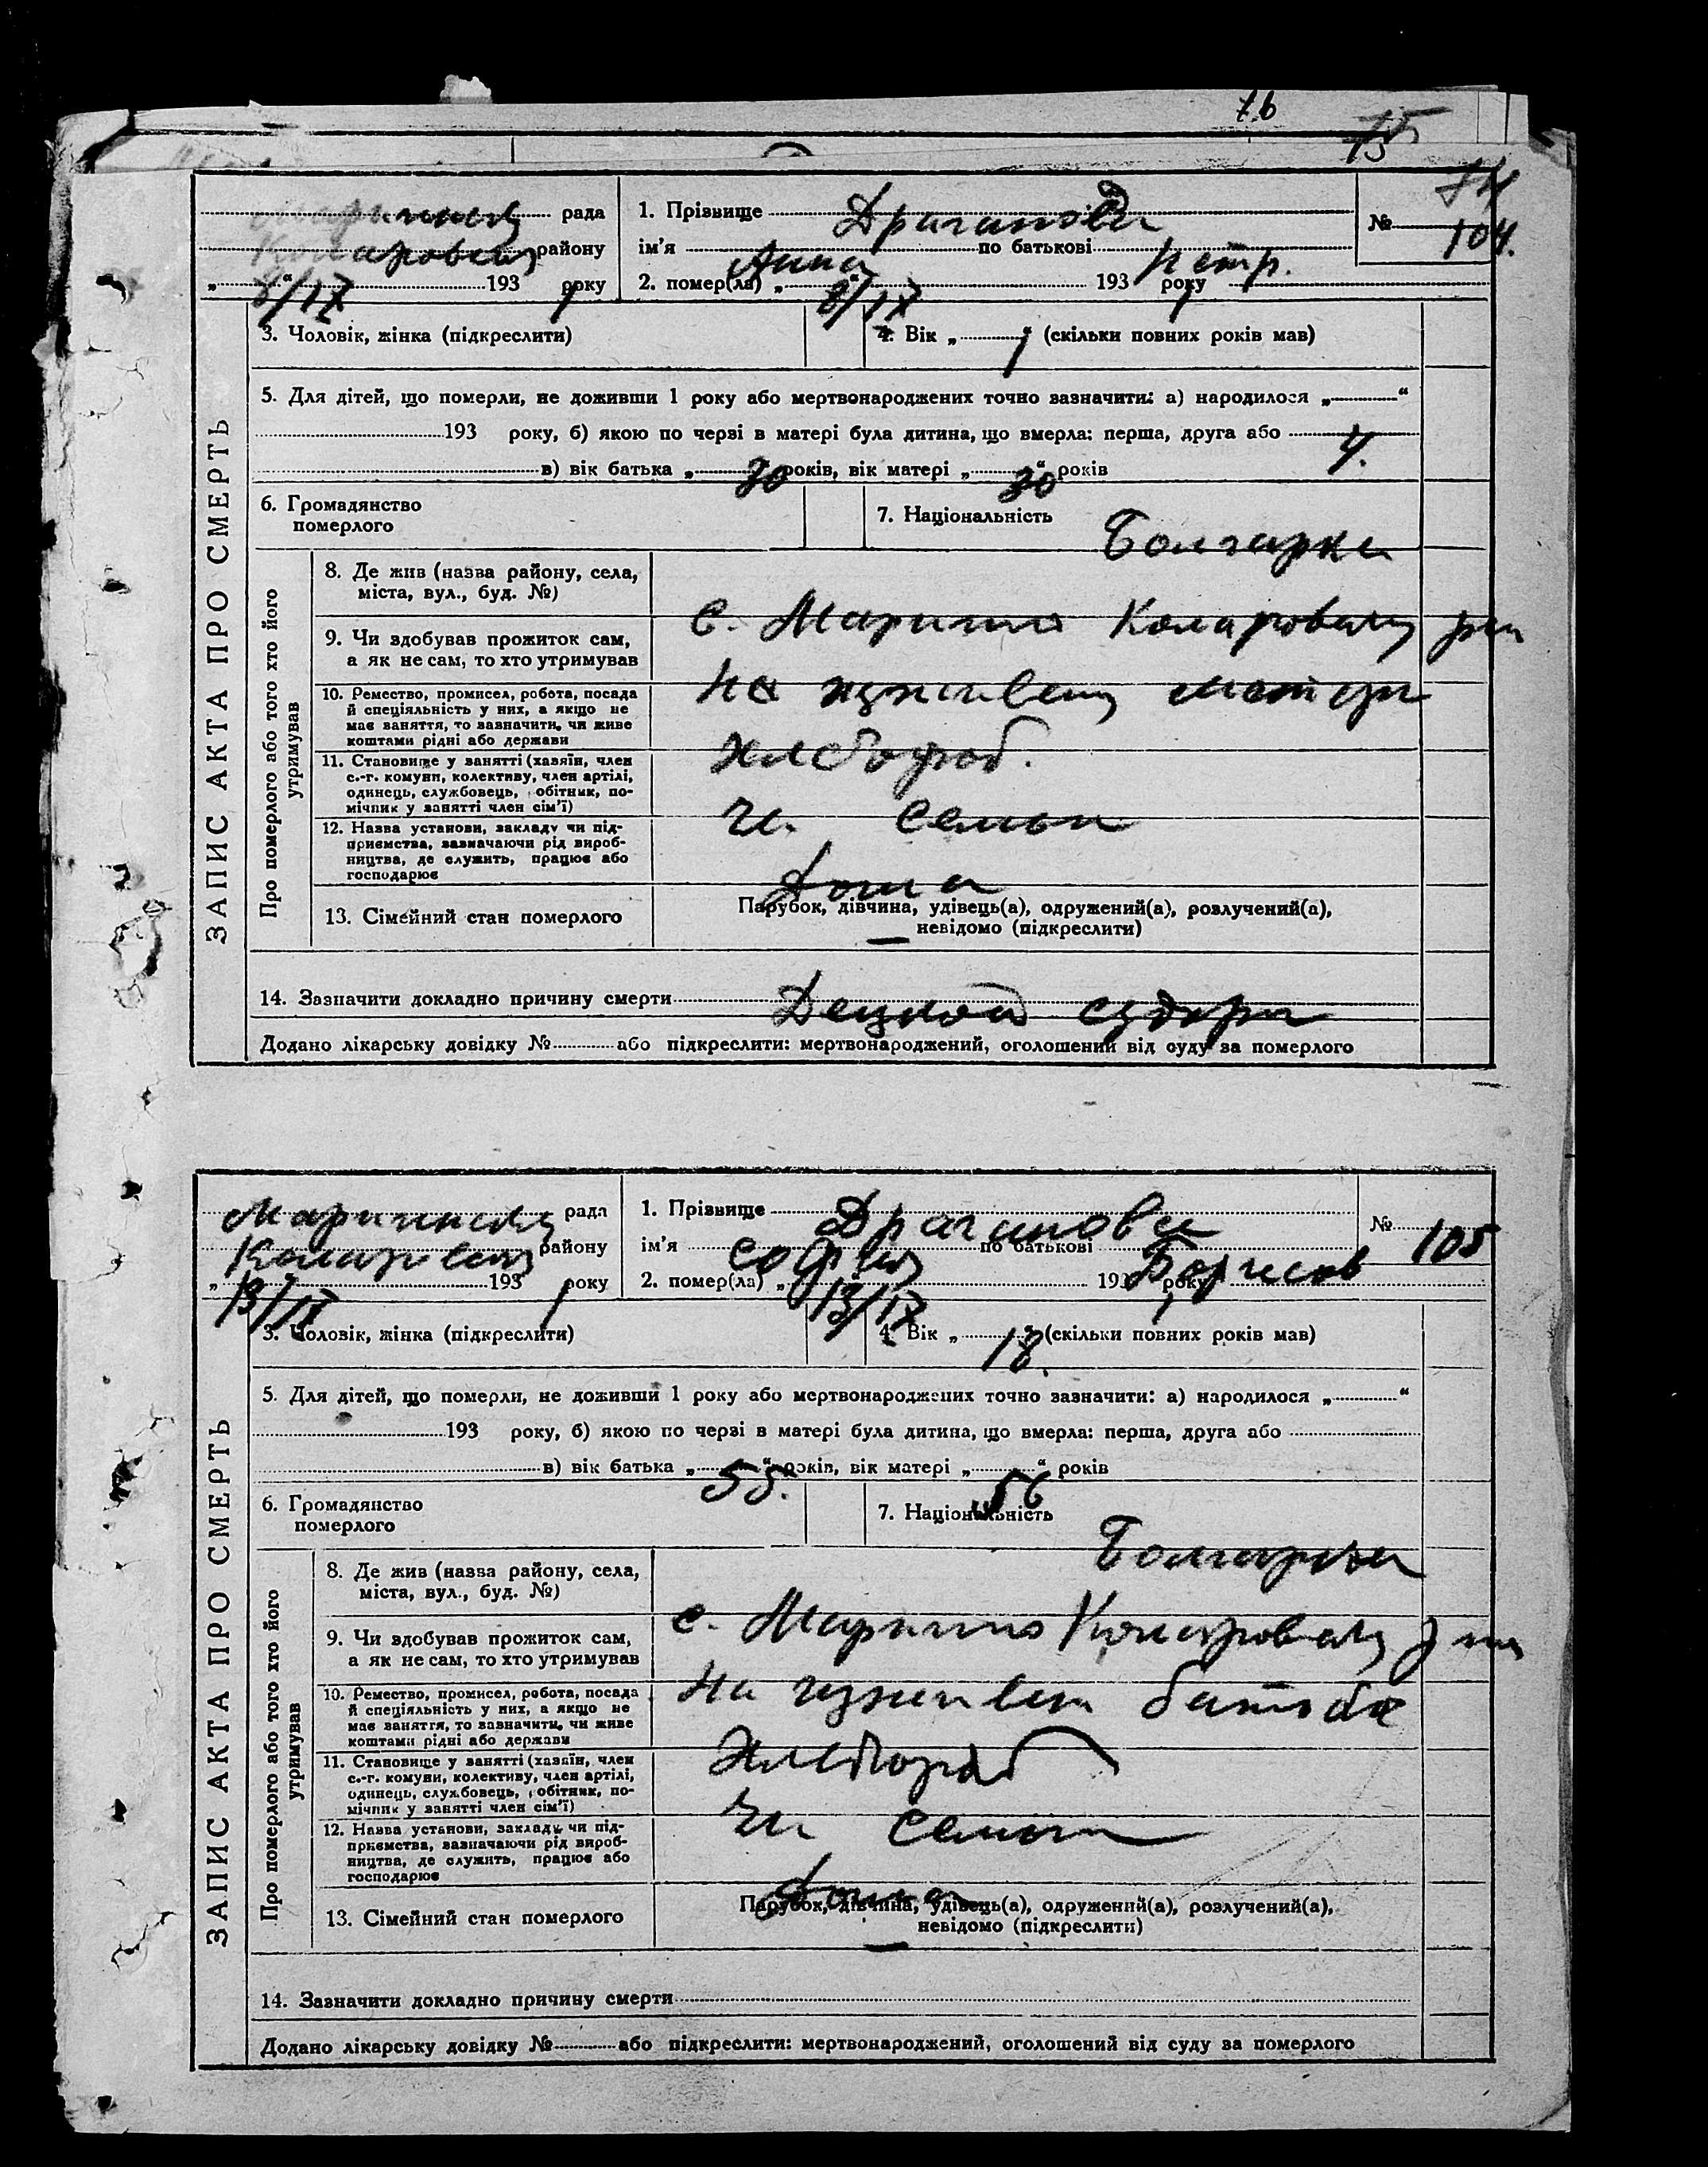 7.б
75
74
рада
1. Прізвище Драганова
№ 104.
Комаровськ району
ім'я Анна по батькові Петр.
„8/IX“ 1931 року
2. помер(ла) „8/IX“ 1931 року
ЗАПИС АКТА ПРО СМЕРТЬ
3. Чоловік, жінка (підкреслити)
4. Вік „1“ (скільки повних років мав)
5. Для дітей, що померли, не доживши 1 року або мертвонароджених точно зазначити: а) народилося „ “
193 року, б) якою по черзі в матері була дитина, що вмерла: перша, друга або 4.
в) вік батька „30 років, вік матері „30“ років
6. Громадянство
померлого
7. Національність Болгарка
Про померлого або того хто його
утримував
8. Де жив (назва району, села,
міста, вул., буд. №)
с. Марино Комаровськ р-ну
9. Чи здобував прожиток сам,
а як не сам, то хто утримував
На матери
10. Ремество, промисел, робота, посада
й спеціяльність у них, а якщо не
має заняття, то зазначити, чи живе
коштами рідні або держави
Хлебороб.
11. Становище у занятті (хазяїн, член
с.-г. комуни, колективу, член артілі,
одинець, службовець, обітник, по-
мічник у занятті член сім'ї)
Чл. семьи
12. Назва установи, закладу чи під-
приємства, зазначаючи рід вироб-
ництва, де служить, працює або
господарює
Дома
13. Сімейний стан померлого
Парубок, дівчина, удівець(а), одружений(а), розлучений(а),
невідомо (підкреслити)
14. Зазначити докладно причину смерти
Додано лікарську довідку № або підкреслити: мертвонароджений, оголошений від суду за померлого
Маринськ рада
1. Прізвище Драганова
№ 105
Комаровськ району
ім'я София по батькові Борисов
„13/IX 1931 року
2. помер(ла) „13/IX 1931 року
ЗАПИС АКТА ПРО СМЕРТЬ
3. Чоловік, жінка (підкреслити)
4. Вік „18. (скільки повних років мав)
5. Для дітей, що померли, не доживши 1 року або мертвонароджених точно зазначити: а) народилося „ “
193 року, б) якою по черзі в матері була дитина, що вмерла: перша, друга або
в) вік батька „55.“ років, вік матері „56“ років
6. Громадянство
померлого
7. Національність Болгарка
Про померлого або того хто його
утримував
8. Де жив (назва району, села,
міста, вул., буд. №)
с. Марино Комаровськ р-ну
9. Чи здобував прожиток сам,
а як не сам, то хто утримував
На батька
10. Ремество, промисел, робота, посада
й спеціяльність у них, а якщо не
має заняття, то зазначити, чи живе
коштами рідні або держави
Хлебороб
11. Становище у занятті (хазяїн, член
с.-г. комуни, колективу, член артілі,
одинець, службовець, обітник, по-
мічник у занятті член сім'ї)
Чл. семьи
12. Назва установи, закладу чи під-
приємства, зазначаючи рід вироб-
ництва, де служить, працює або
господарює
Дома
13. Сімейний стан померлого
Парубок, дівчина, удівець(а), одружений(а), розлучений(а),
невідомо (підкреслити)
14. Зазначити докладно причину смерти
Додано лікарську довідку № або підкреслити: мертвонароджений, оголошений від суду за померлого